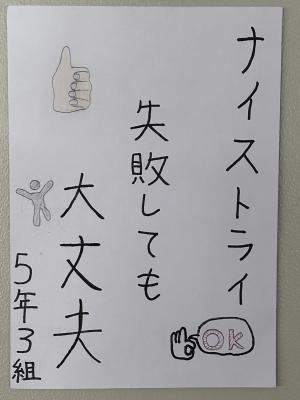 ナイストライ
失敗しても
大丈夫
5年3組
OK